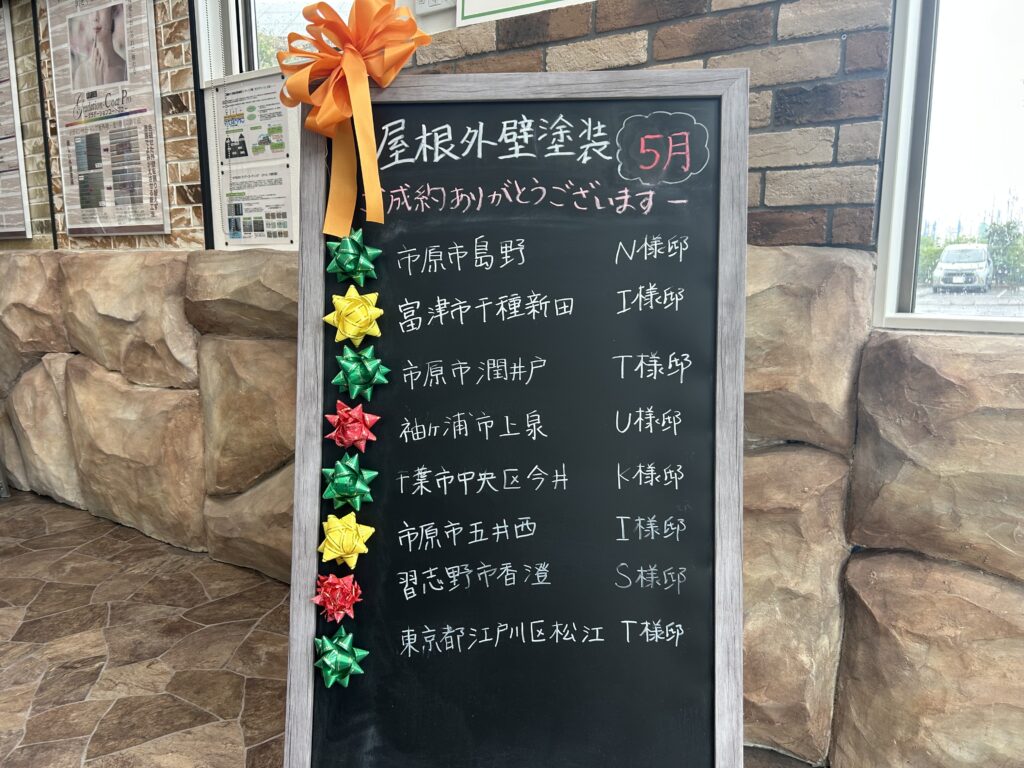 屋根外壁塗装 5月
ご成約ありがとうございますー
市原市島野 N様邸
富津市千種新田 I様邸
市原市潤井戸 T様邸
袖ヶ浦市上泉 U様邸
千葉市中央区今井 K様邸
市原市五井西 I様邸
習志野市香澄 S様邸
東京都江戸川区松江 T様邸